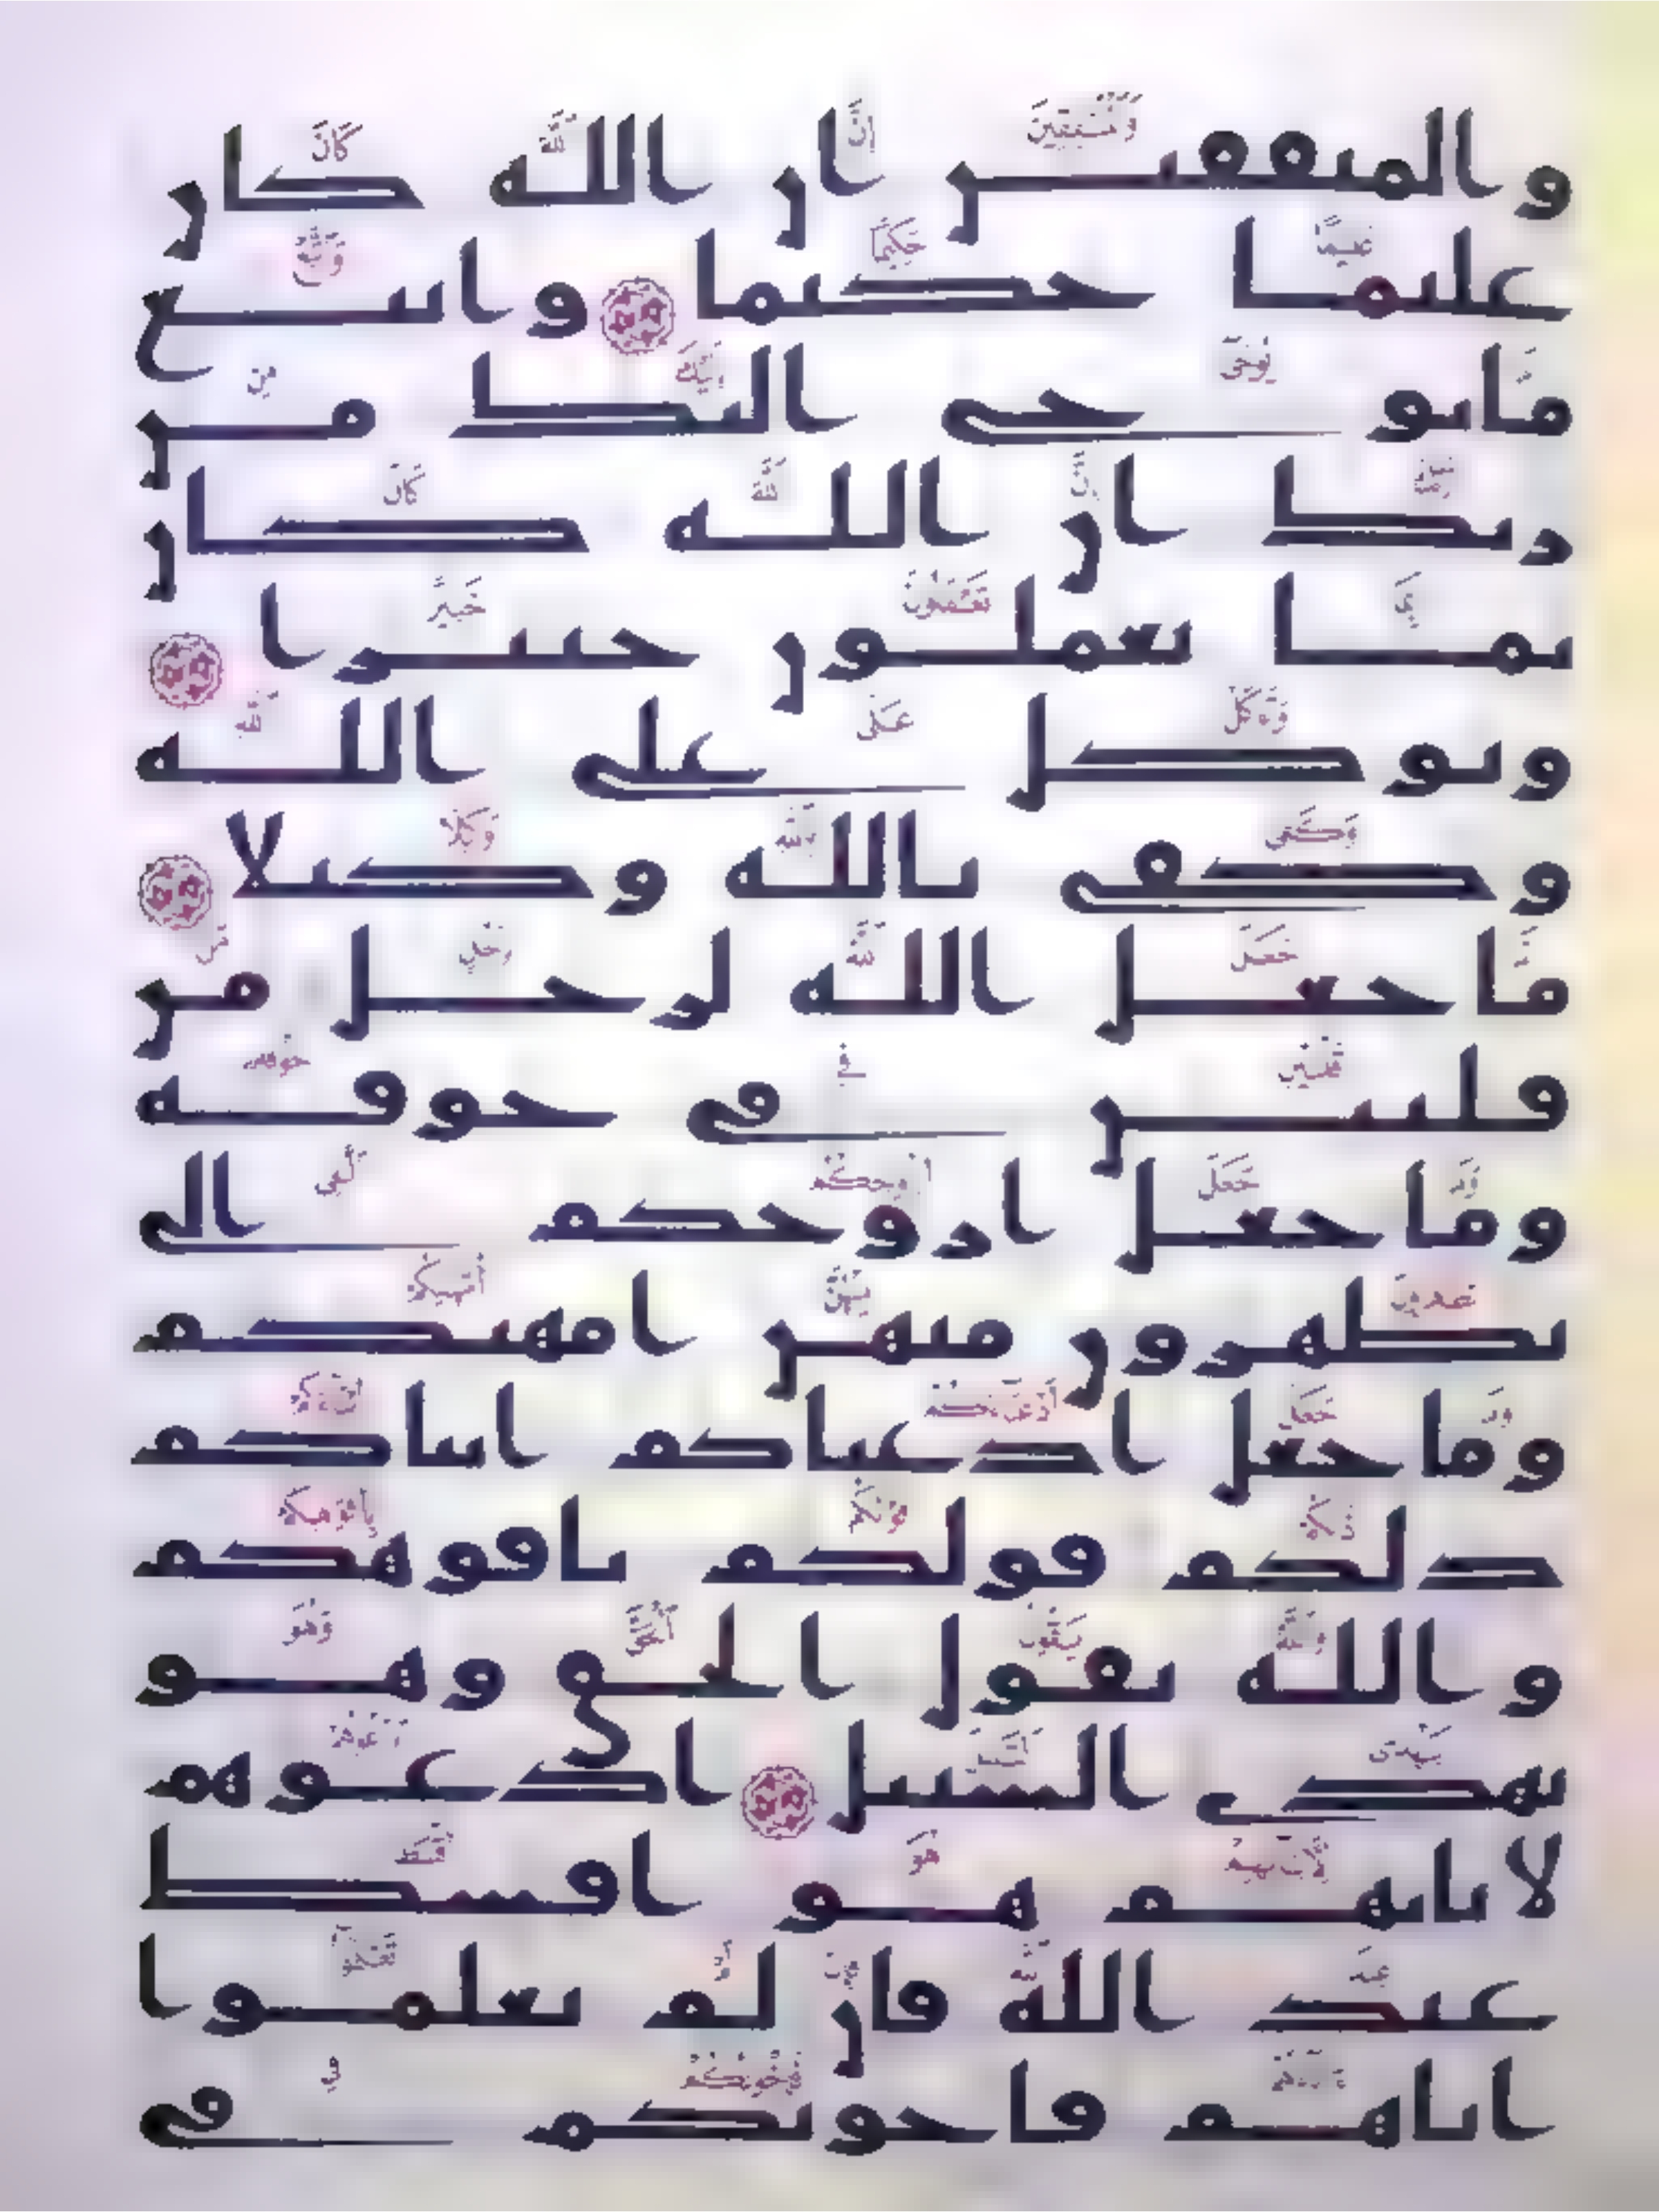 والمنفقين ان الله كان
عليما حكيما واتبع
ما يوحى اليك من
ربك ان الله كان
بما تعملون خبيرا
وتوكل على الله
وكفى بالله وكيلا
ما جعل الله لرجل من
قلبين فى جوفه
وما جعل ازوجكم الى
تظهرون منهن امهتكم
وما جعل ادعياكم ابناكم
ذلكم قولكم بافوهكم
والله يقول الحق وهو
يهدى السبيل ادعوهم
لابايهم هو اقسط
عند الله فان لم تعلموا
اباهم فاخونكم فى